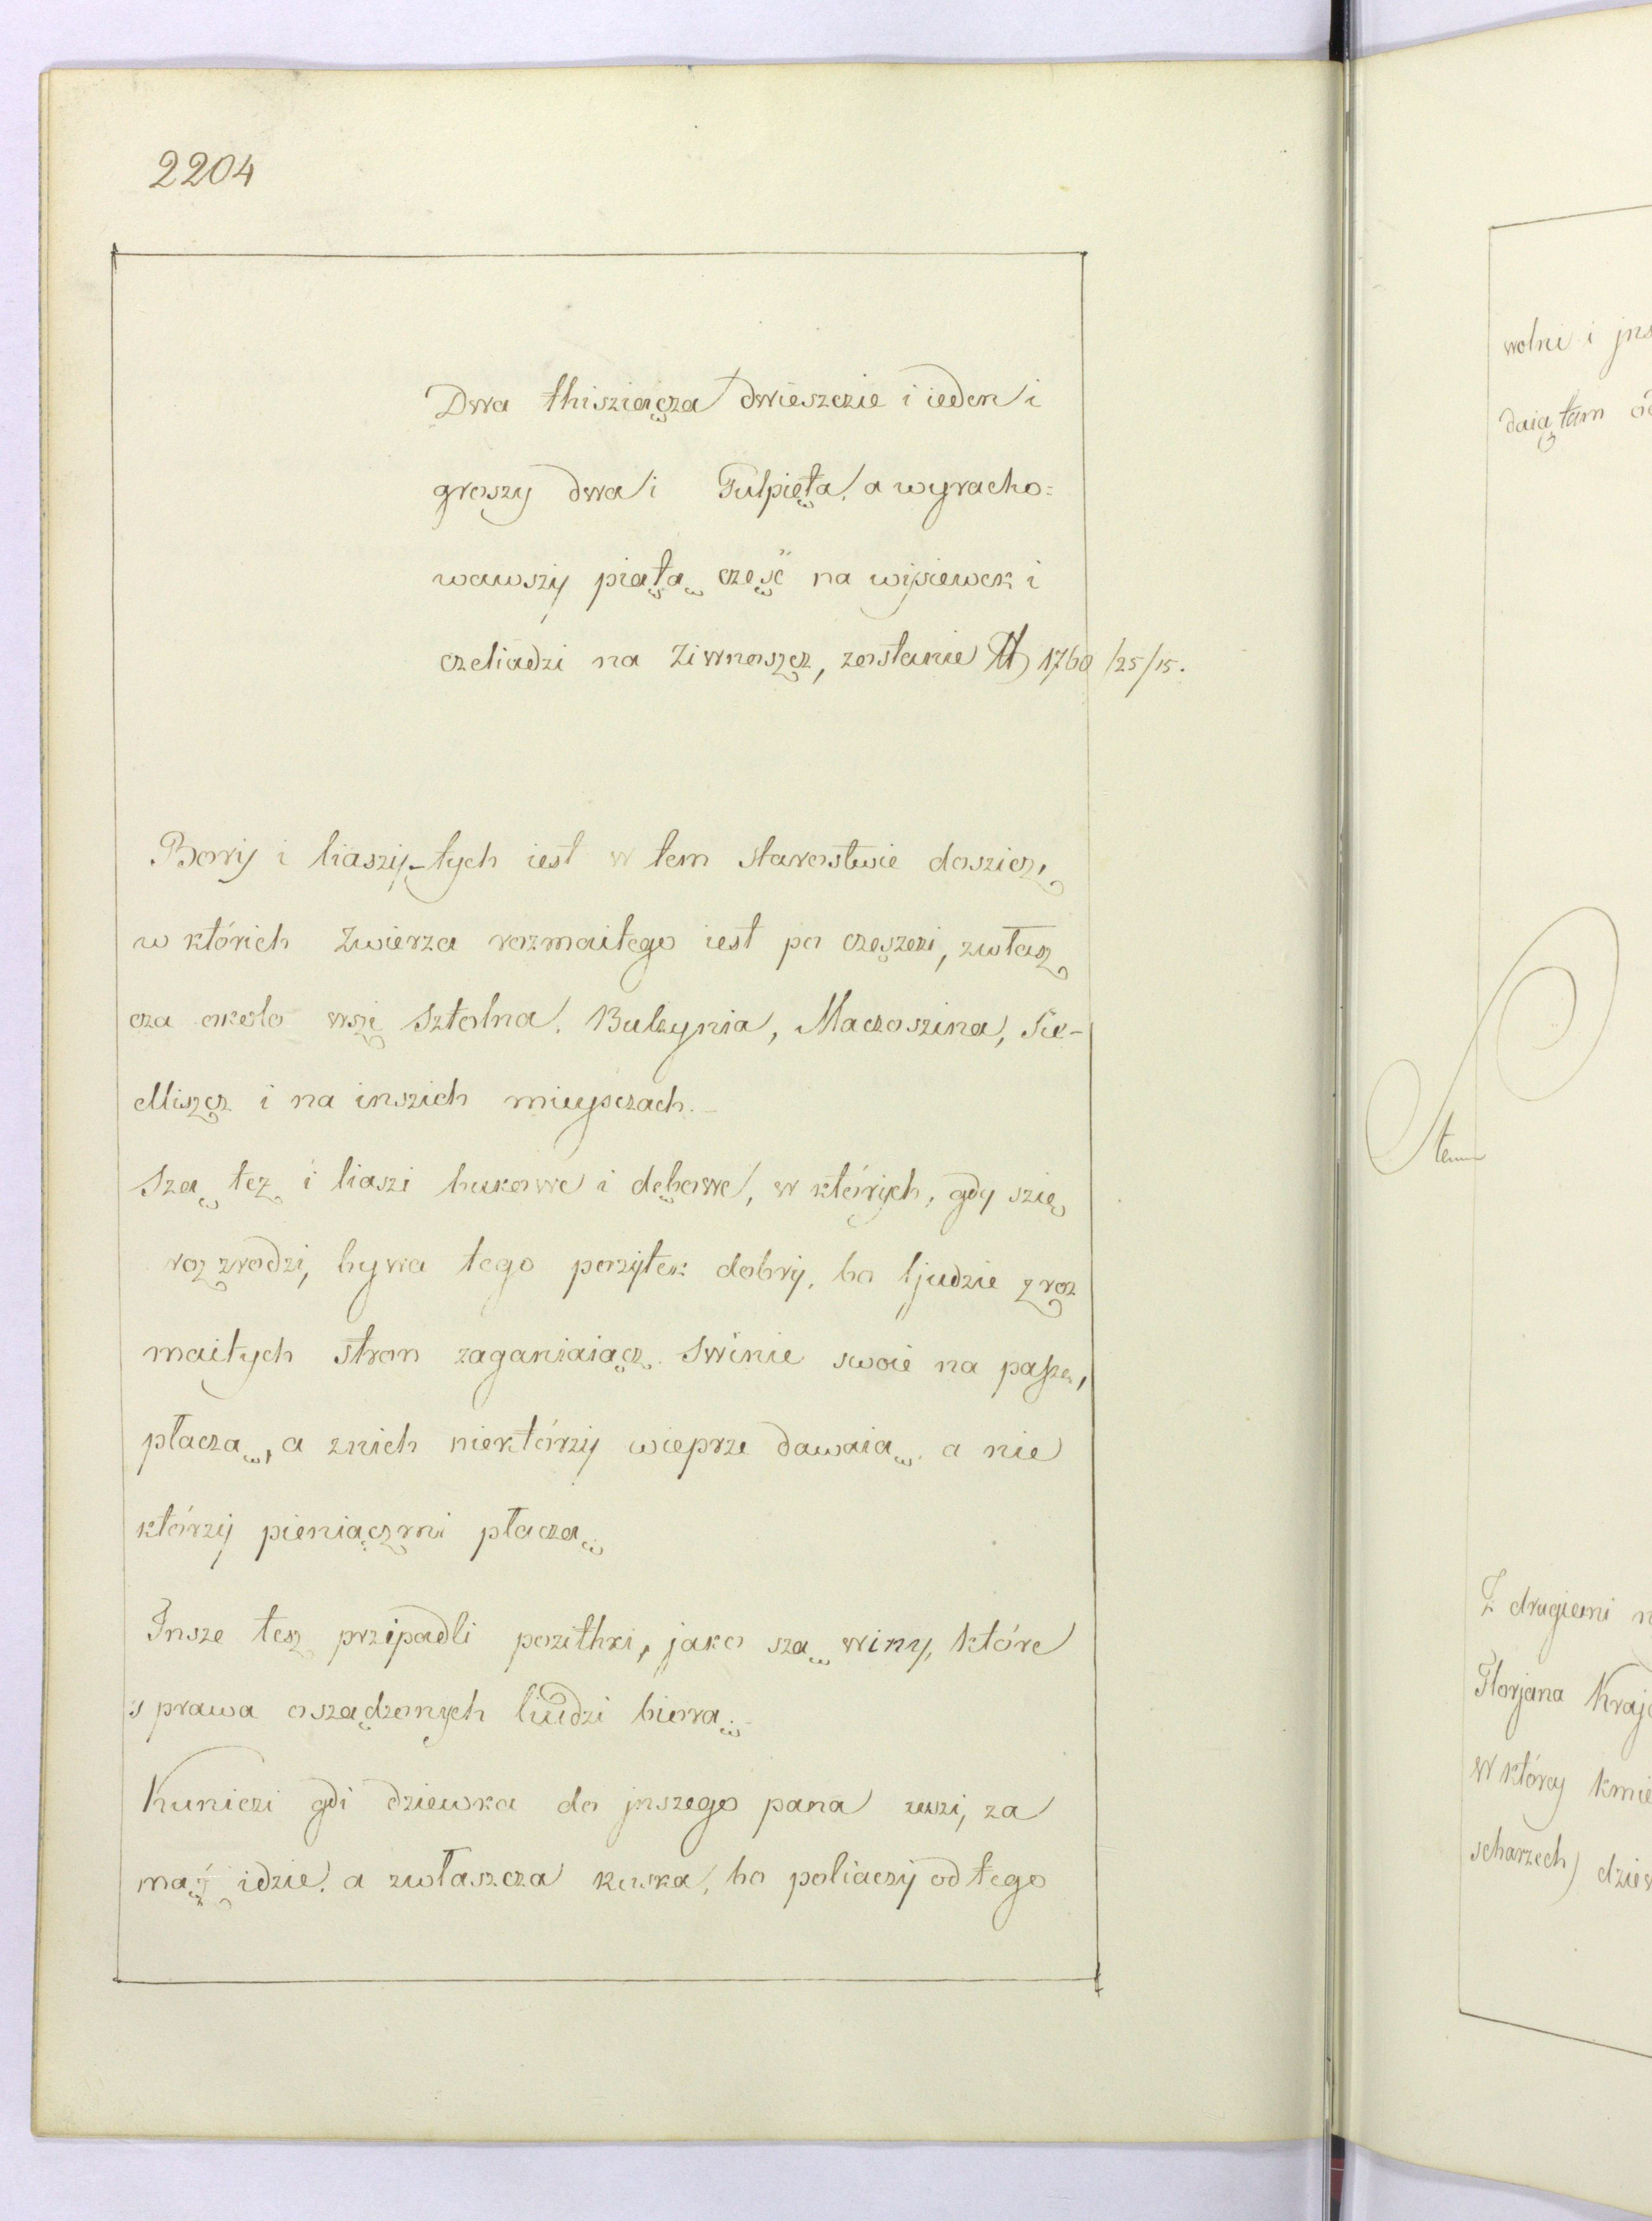 2204
Dwa thisziącza dwieszczie i ieden i
groszy dwa i Pulpięta, a wyracho=
wawszy piątą część na wysiewek i
czeliadzi na Ziwnoszcz, zostanie fl 1760/25/15.
Bory i liaszy tych iest w tem starostwie doszicz,
w których Zwierza rozmaitego iest po częszczi, zwłasz
cza około wszi Sztolna, Bulzynia, Maczoszina, Sie-
dliszcz i na inszich mieysczach.
Szą tez i liaszi bukowe i dębowe, w których, gdy szię
roz zrodzi, bywa tego pozytek dobry, bo ljudzie z roz
maitych stron zaganiaiącz Swinie swoie na paszę,
płaczą, a znich niektórzy wieprze dawaią, a nie
którzy pieniączmi płaczą.
Insze tesz przipadli pozithki, jako szą winy, które
s prawa osządzonych liudzi biorą.
Kuniczi gdi dziewka do jnszego pana wszi, za
mąż idzie, a zwłaszcza ruska, bo poliaczy od tego
wolni i
daią tam
Z drugiemi
Florjana
W którey
scharzech)